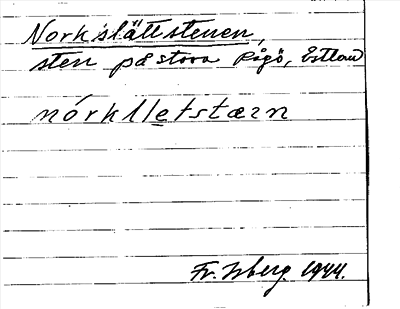 Norkslättstenen,
sten på stora Rågö, Estland
nórkslletstæn
Fr. Isberg 1944.